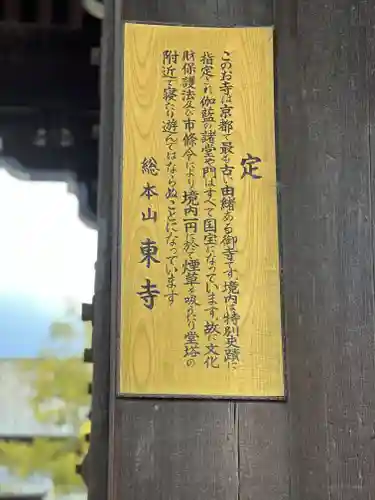 定
このお寺は京都で最も古い由緒ある御寺です、境内は特別史蹟に
指定され伽藍の諸堂や門はすべて国宝になっています、故に文化
財保護法及び市條令により境内一円に於て煙草を吸ったり堂塔の
附近で寝たり遊んではならぬことになっています
総本山 東寺